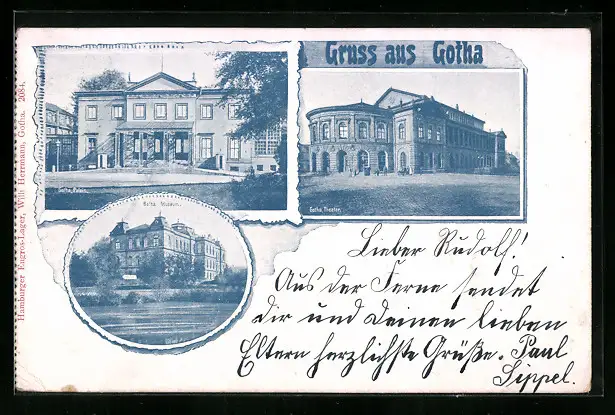 Gruss aus Gotha
Gotha, Palais.
Gotha, Theater.
Gotha, Museum.
Hamburger Engros-Lager, Wilh. Herrmann, Gotha. 2084.
Lieber Rudolf!
Aus der Ferne sendet
dir und Deinen lieben
Eltern herzlichste Grüße. Paul
Sippel.